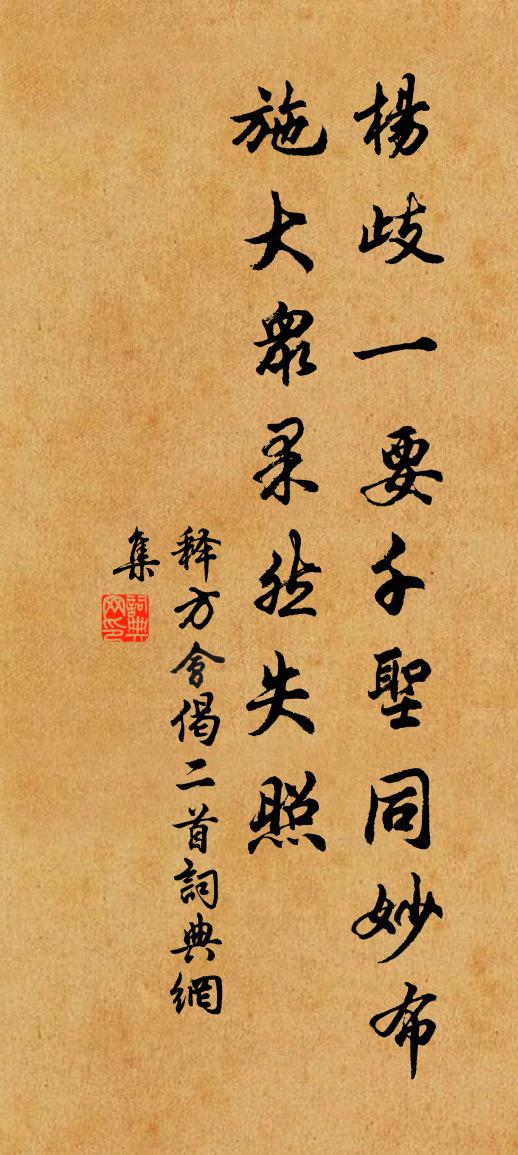 楊歧一要千聖同妙布
施大衆果然失照
释方會偈二首詞典網
集
詞典網印